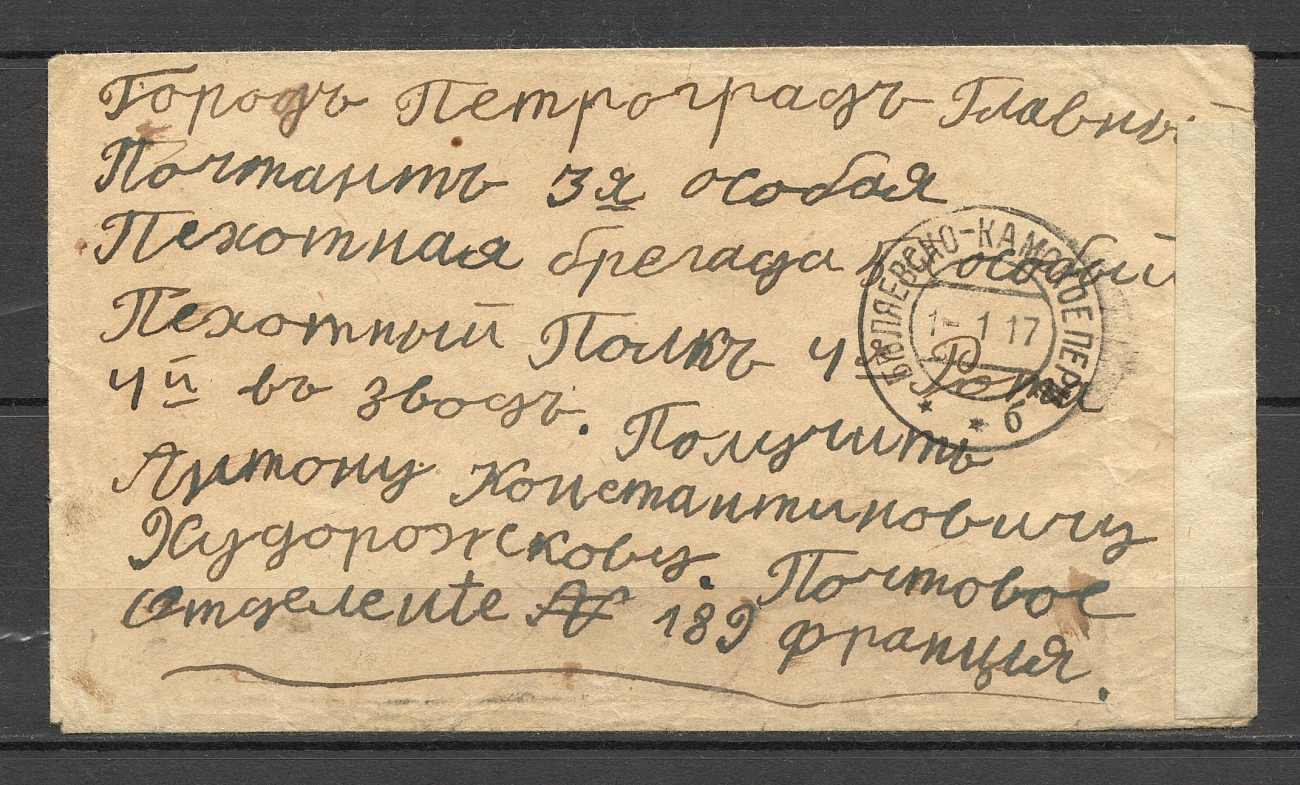 Городъ Петроградъ Главны
Почтантъ 3я особая
Пехотная брегада 5 особый
Пехотный Полкъ 4й Рота
4й въ зводъ. Получить
Антону Константиновичу
Худорожскову. Почтовое
отделенiе № 189 франция.
КАМСКОЕ ПЕР
1- 1 17
б